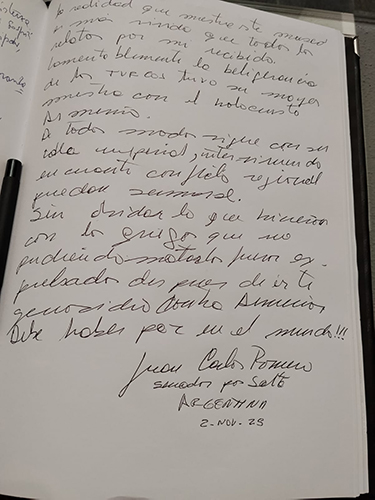 la realidad que muestra este museo
es más cruda que todos los
relatos por mi recibido.
Lamentablemente la beligerancia
de los TURCOS tuvo su mayor
muestra con el holocausto
Armenio.
De todos modos sigue con su
idea imperial, interviniendo
en cuanto conflicto regional
puedan
Sin olvidar lo que hicieron
con los griegos que no
pudiendo matarlos fueron ex-
pulsados despues de este
genosidio contra Armenios
Debe haber paz en el mundo!!!
Juan Carlos Romero
senador por Salta
ARGENTINA
2-NOV-23